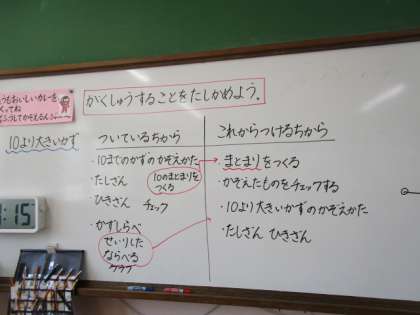 がくしゅうすることをたしかめよう。
うもおいしいカレーを
くってね
10より大きいかず
ついているちから
・10までのかずのかぞえかた
・たしざん
10のまとまりを
つくる
・ひきざん チェック
・かずしらべ
せいりした
ならべる
グラフ
これからつけるちから
・まとまりをつくる
・かぞえたものをチェックする
・10より大きいかずのかぞえかた
・たしざん ひきざん
:15